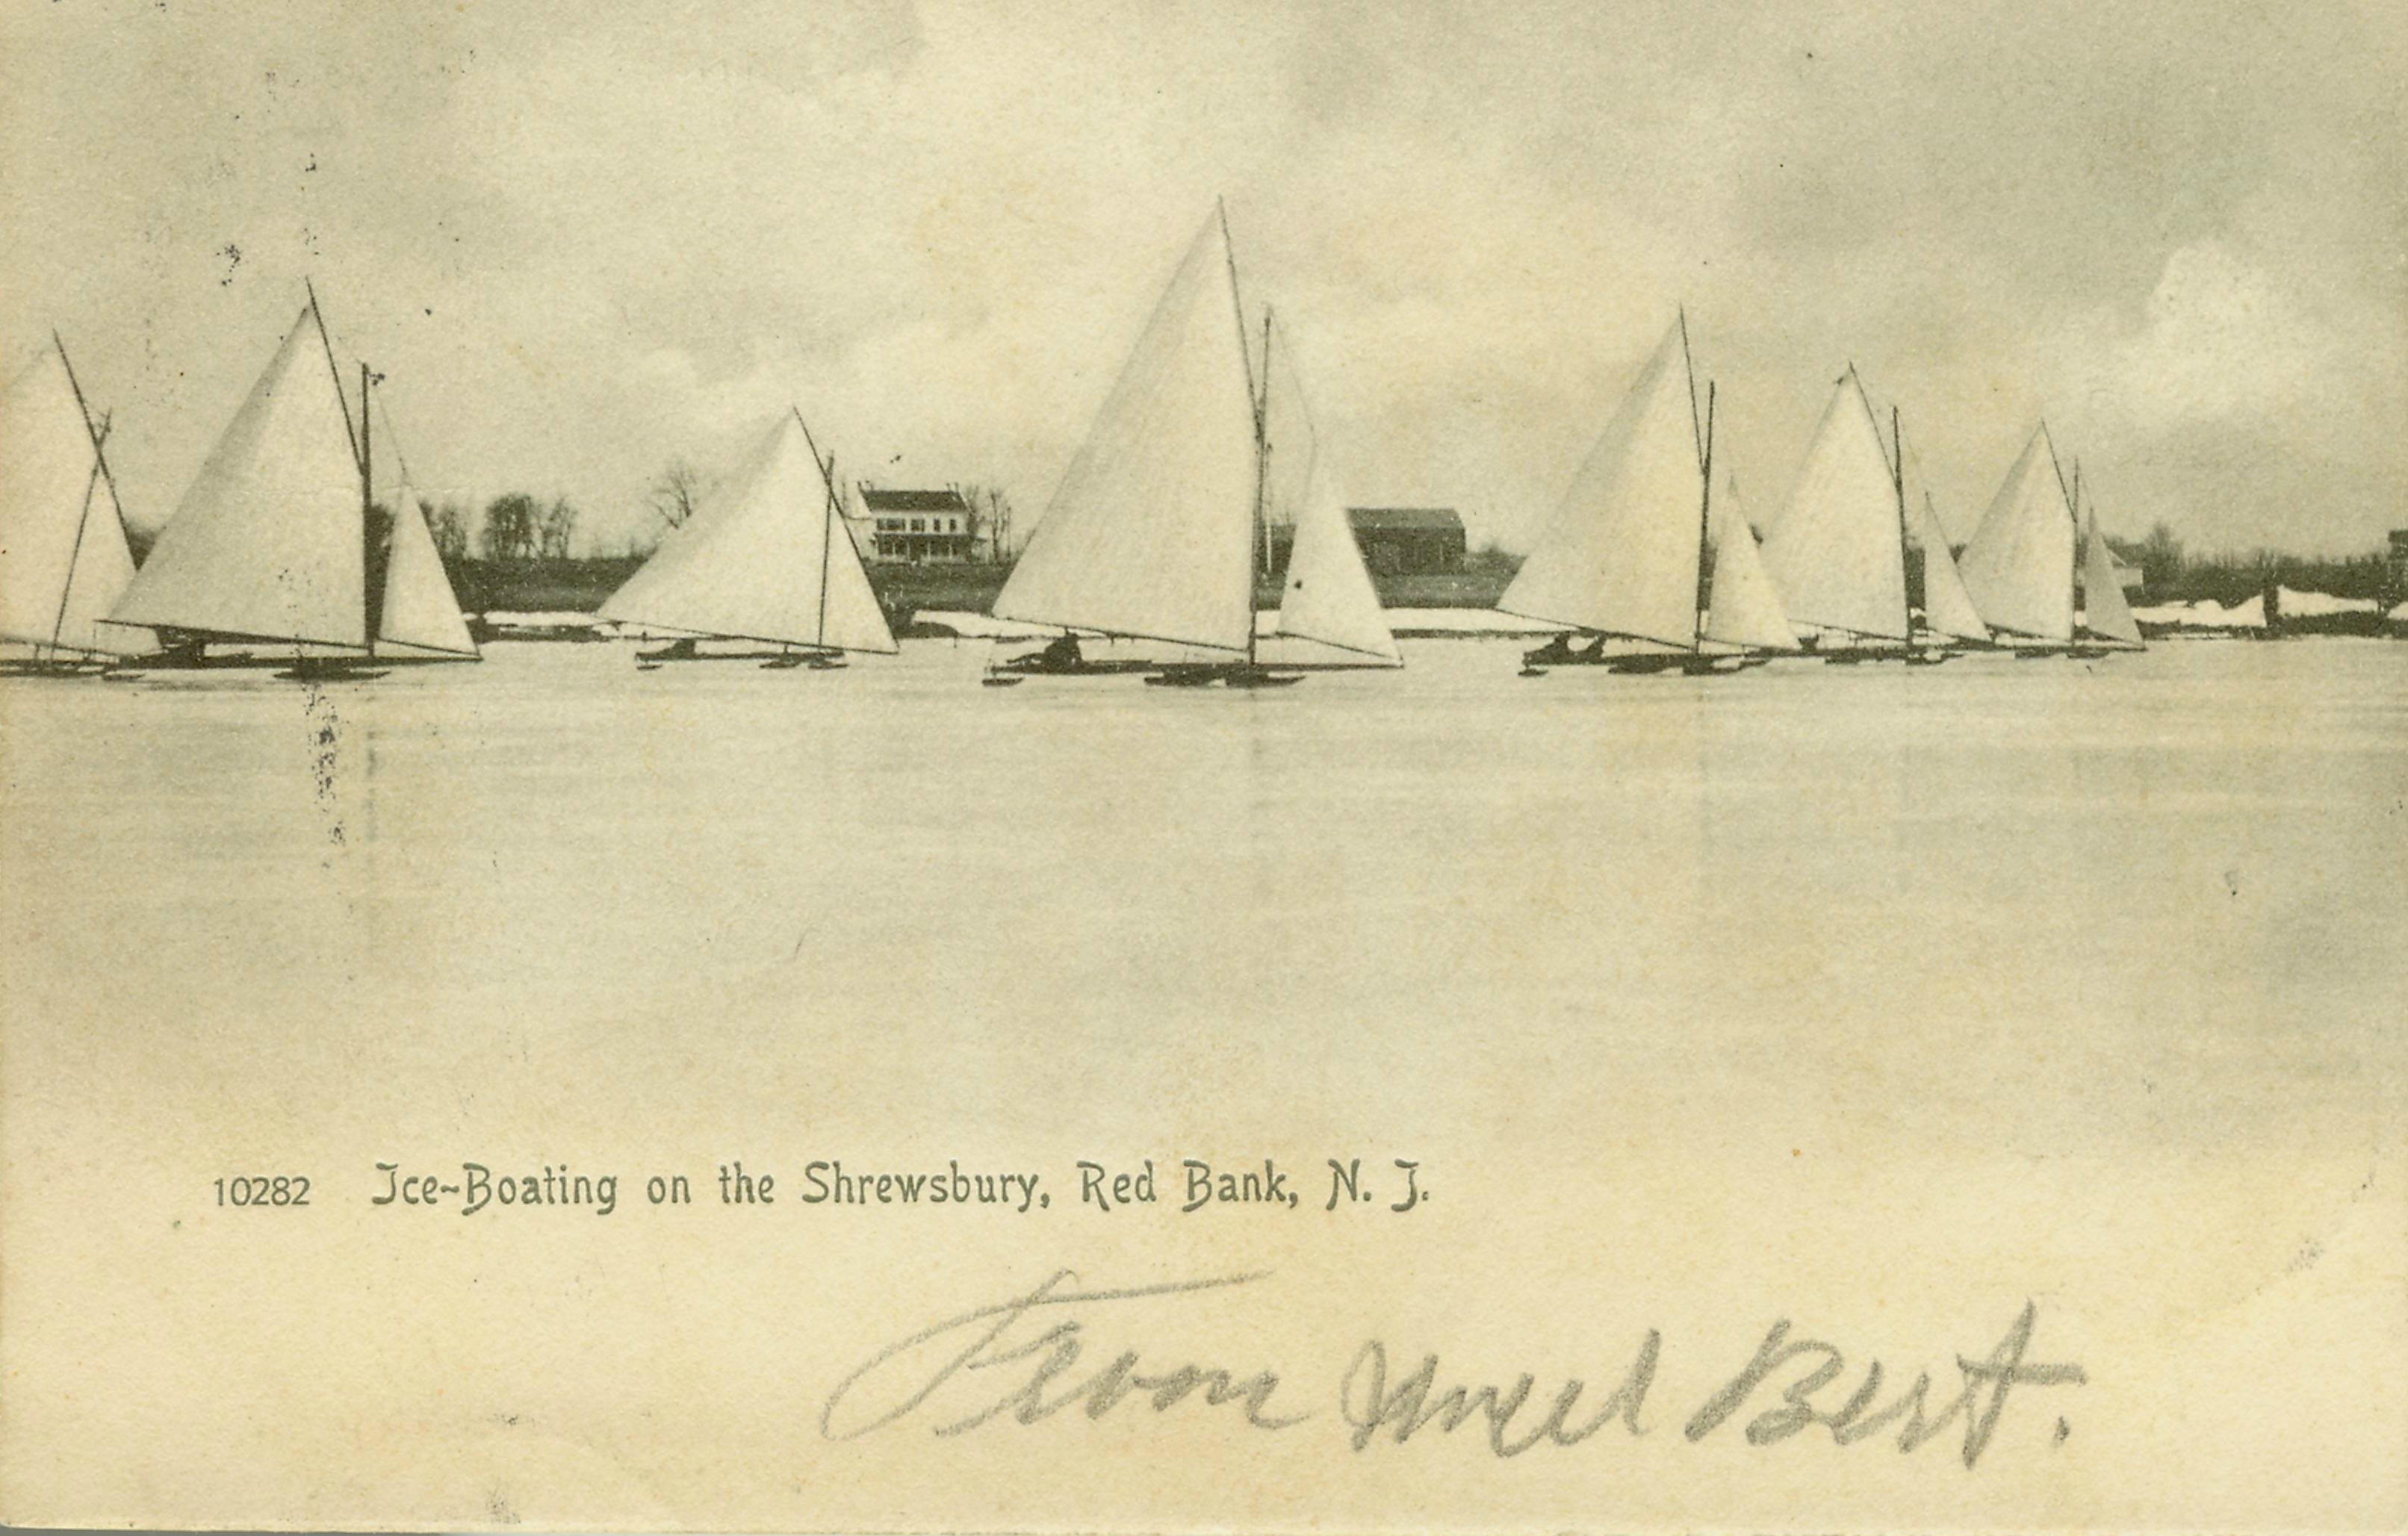 10282 Ice-Boating on the Shrewsbury, Red Bank, N. J.
From Uncel Bert.